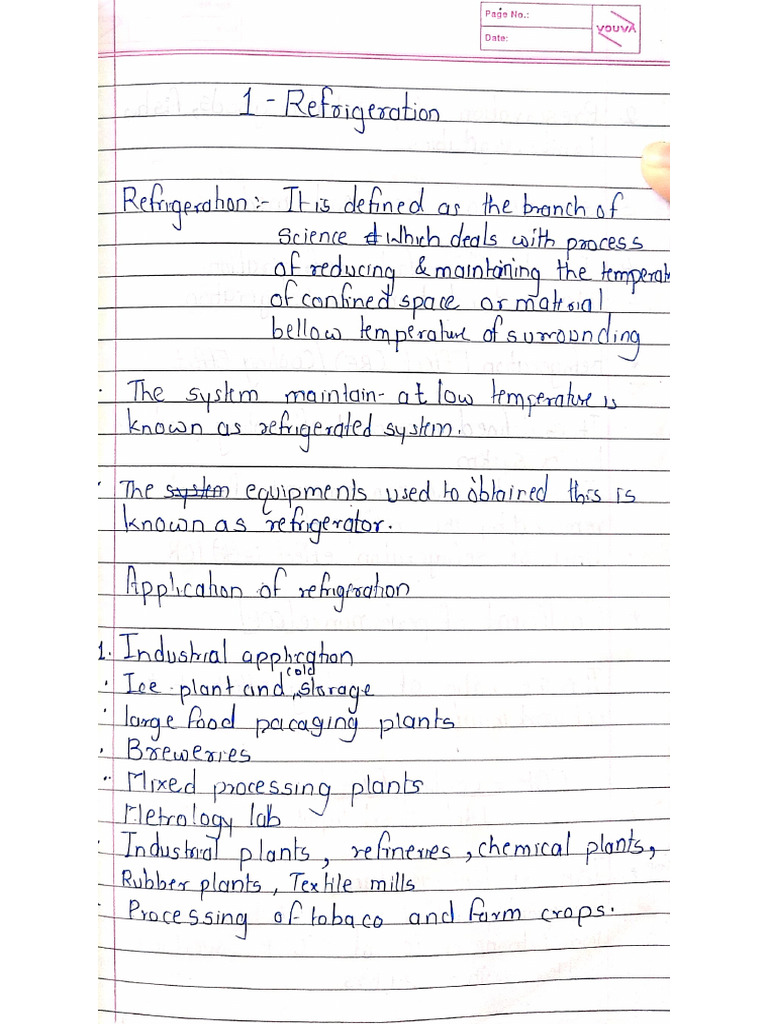 Page No.:
Date:
YOUVA
1 - Refrigeration
Refrigeration:- It is defined as the branch of
science & which deals with process
of reducing & maintaining the temperat
of confined space or material
bellow temperature of surrounding
· The system maintain- at low temperature is
known as refrigerated system.
· The system equipments used to obtained this is
known as refrigerator.
Application of refrigeration
1. Industrial application
cold
· Ice plant and, storage
· large food pacaging plants
· Breweries
·· Mixed processing plants
Metrology lab
· Industrial plants, refineries, chemical plants,
Rubber plants, Textile mills
- Processing of tobaco and farm crops.